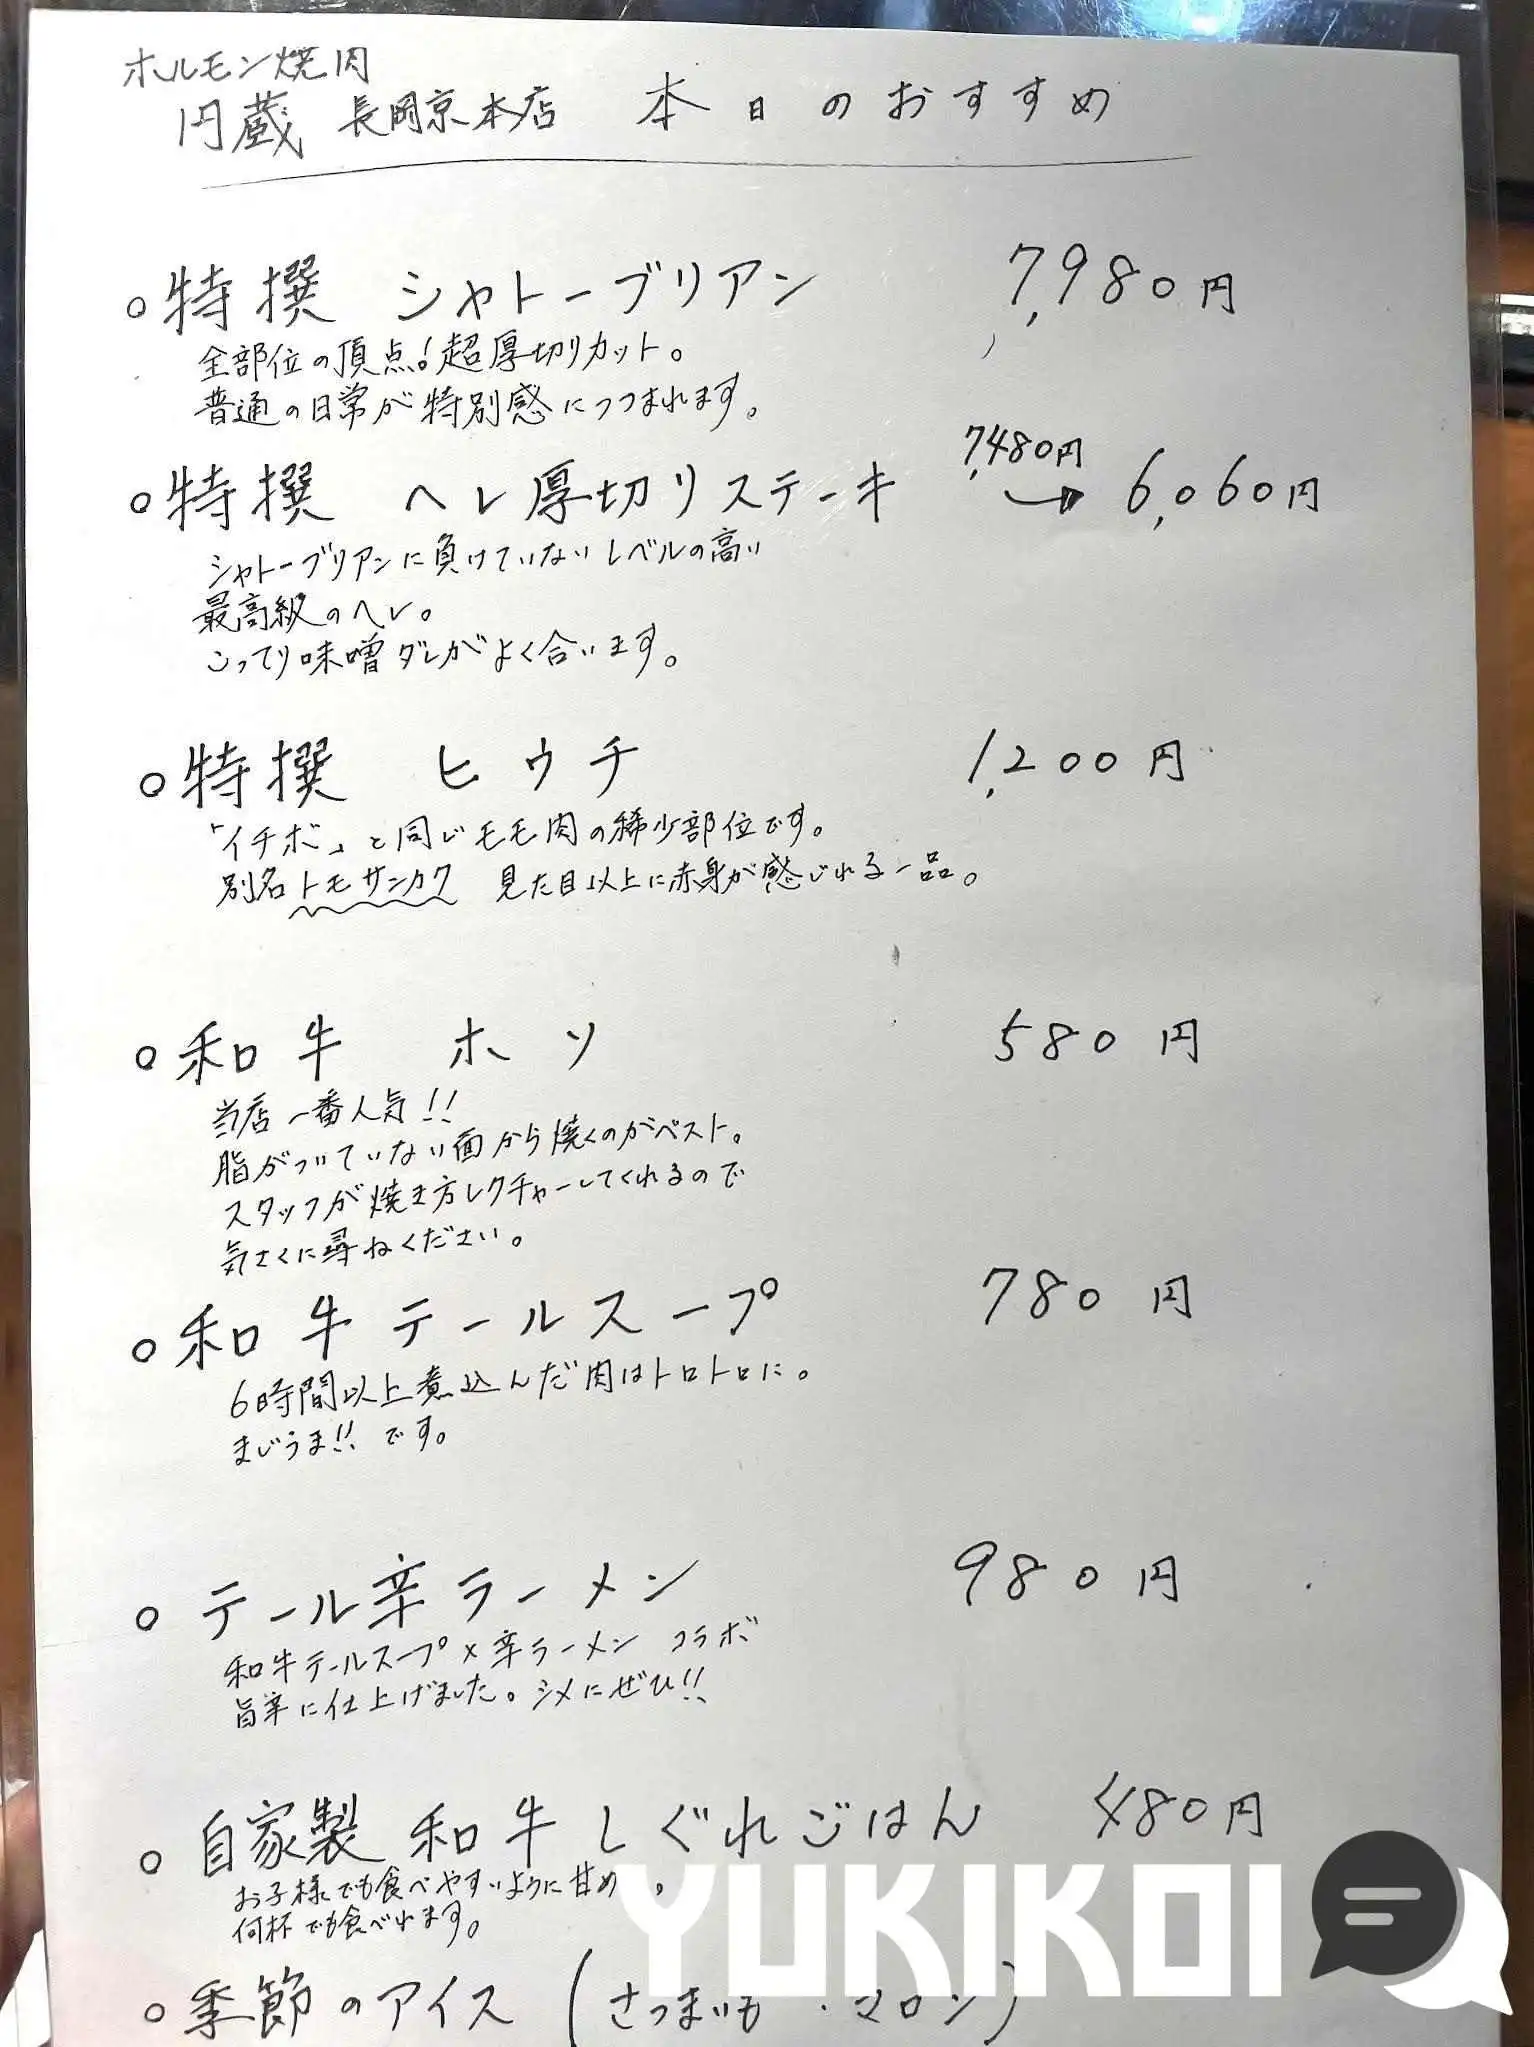 ホルモン焼肉
円蔵 長岡京本店 本日のおすすめ
○特撰 シャトーブリアン 7,980円
全部位の頂点!超厚切りカット。
普通の日常が特別感につつまれます。
○特撰 ヘレ厚切りステーキ 7,480円 → 6,060円
シャトーブリアンに負けていないレベルの高い
最高級のヘレ。
こってり味噌ダレがよく合います。
○特撰 ヒウチ 1,200円
「イチボ」と同じモモ肉の稀少部位です。
別名トモサンカク 見た目以上に赤身が感じれる一品。
○和牛 ホソ 580円
当店一番人気!!
脂がついていない面から焼くのがベスト。
スタッフが焼き方レクチャーしてくれるので
気さくに尋ねください。
○和牛テールスープ 780円
6時間以上煮込んだ肉はトロトロに。
まじうま!!です。
○テール辛ラーメン 980円
和牛テールスープ×辛ラーメン コラボ
旨辛に仕上げました。シメにぜひ!!
○自家製 和牛しぐれごはん 480円
お子様でも食べやすいように甘め。
何杯でも食べれます。
○季節のアイス(さつまいも・マロン)
YUKIKOI